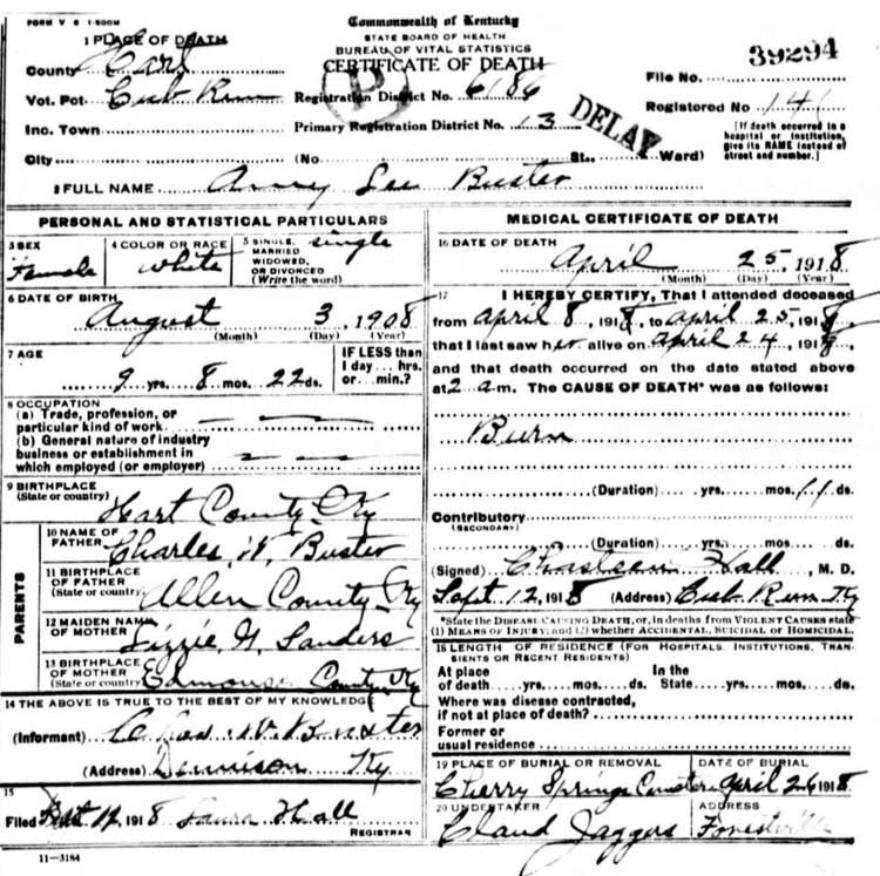 FORM V S 1-500M
Commonwealth of Kentucky
STATE BOARD OF HEALTH
BUREAU OF VITAL STATISTICS
CERTIFICATE OF DEATH
39294
1 PLACE OF DEATH
County Hart
File No.
Vot. Pct. Cub Run Registration District No. 6186
Registered No 14
Inc. Town Primary Registration District No. 13
DELAY
P
[If death occurred in a hospital or institution, give its NAME instead of street and number.]
City (No St., Ward)
2 FULL NAME Lee Buster
PERSONAL AND STATISTICAL PARTICULARS
3 SEX Female
4 COLOR OR RACE white
5 SINGLE, MARRIED WIDOWED, OR DIVORCED (Write the word) single
6 DATE OF BIRTH
August 3, 1908
(Month) (Day) (Year)
7 AGE
9 yrs. 8 mos. 22 ds.
IF LESS than 1 day ... hrs. or ... min.?
8 OCCUPATION
(a) Trade, profession, or particular kind of work
(b) General nature of industry
business or establishment in
which employed (or employer)
9 BIRTHPLACE
(State or country)
Hart County Ky
PARENTS
10 NAME OF FATHER Charles W. Buster
11 BIRTHPLACE OF FATHER (State or country) Allen County Ky
12 MAIDEN NAME OF MOTHER Lizzie Sanders
13 BIRTHPLACE OF MOTHER (State or country) Edmonson County Ky
14 THE ABOVE IS TRUE TO THE BEST OF MY KNOWLEDGE
(Informant) Chas. W. Buster
(Address) Dennison Ky
15
Filed 1918 Laura Hall
REGISTRAR
11—3184
MEDICAL CERTIFICATE OF DEATH
16 DATE OF DEATH
April 25, 1918
(Month) (Day) (Year)
17 I HEREBY CERTIFY, That I attended deceased
from April 8, 1918, to April 25, 1918,
that I last saw her alive on April 24, 1918,
and that death occurred on the date stated above
at 2 a.m. The CAUSE OF DEATH* was as follows:
Burn
(Duration) yrs. mos. 11 ds.
Contributory
(SECONDARY)
(Duration) yrs. mos. ds.
(Signed) Hall, M. D.
Sept 12, 1918 (Address) Cub Run Ky
*State the DISEASE CAUSING DEATH, or, in deaths from VIOLENT CAUSES state
(1) MEANS OF INJURY; and (2) whether ACCIDENTAL, SUICIDAL or HOMICIDAL.
18 LENGTH OF RESIDENCE (FOR HOSPITALS, INSTITUTIONS, TRANSIENTS OR RECENT RESIDENTS)
At place of death yrs. mos. ds. In the State yrs. mos. ds.
Where was disease contracted,
if not at place of death?
Former or
usual residence
19 PLACE OF BURIAL OR REMOVAL
Cherry Springs
DATE OF BURIAL
April 26 1918
20 UNDERTAKER
Claud Jaggers
ADDRESS
Forestville